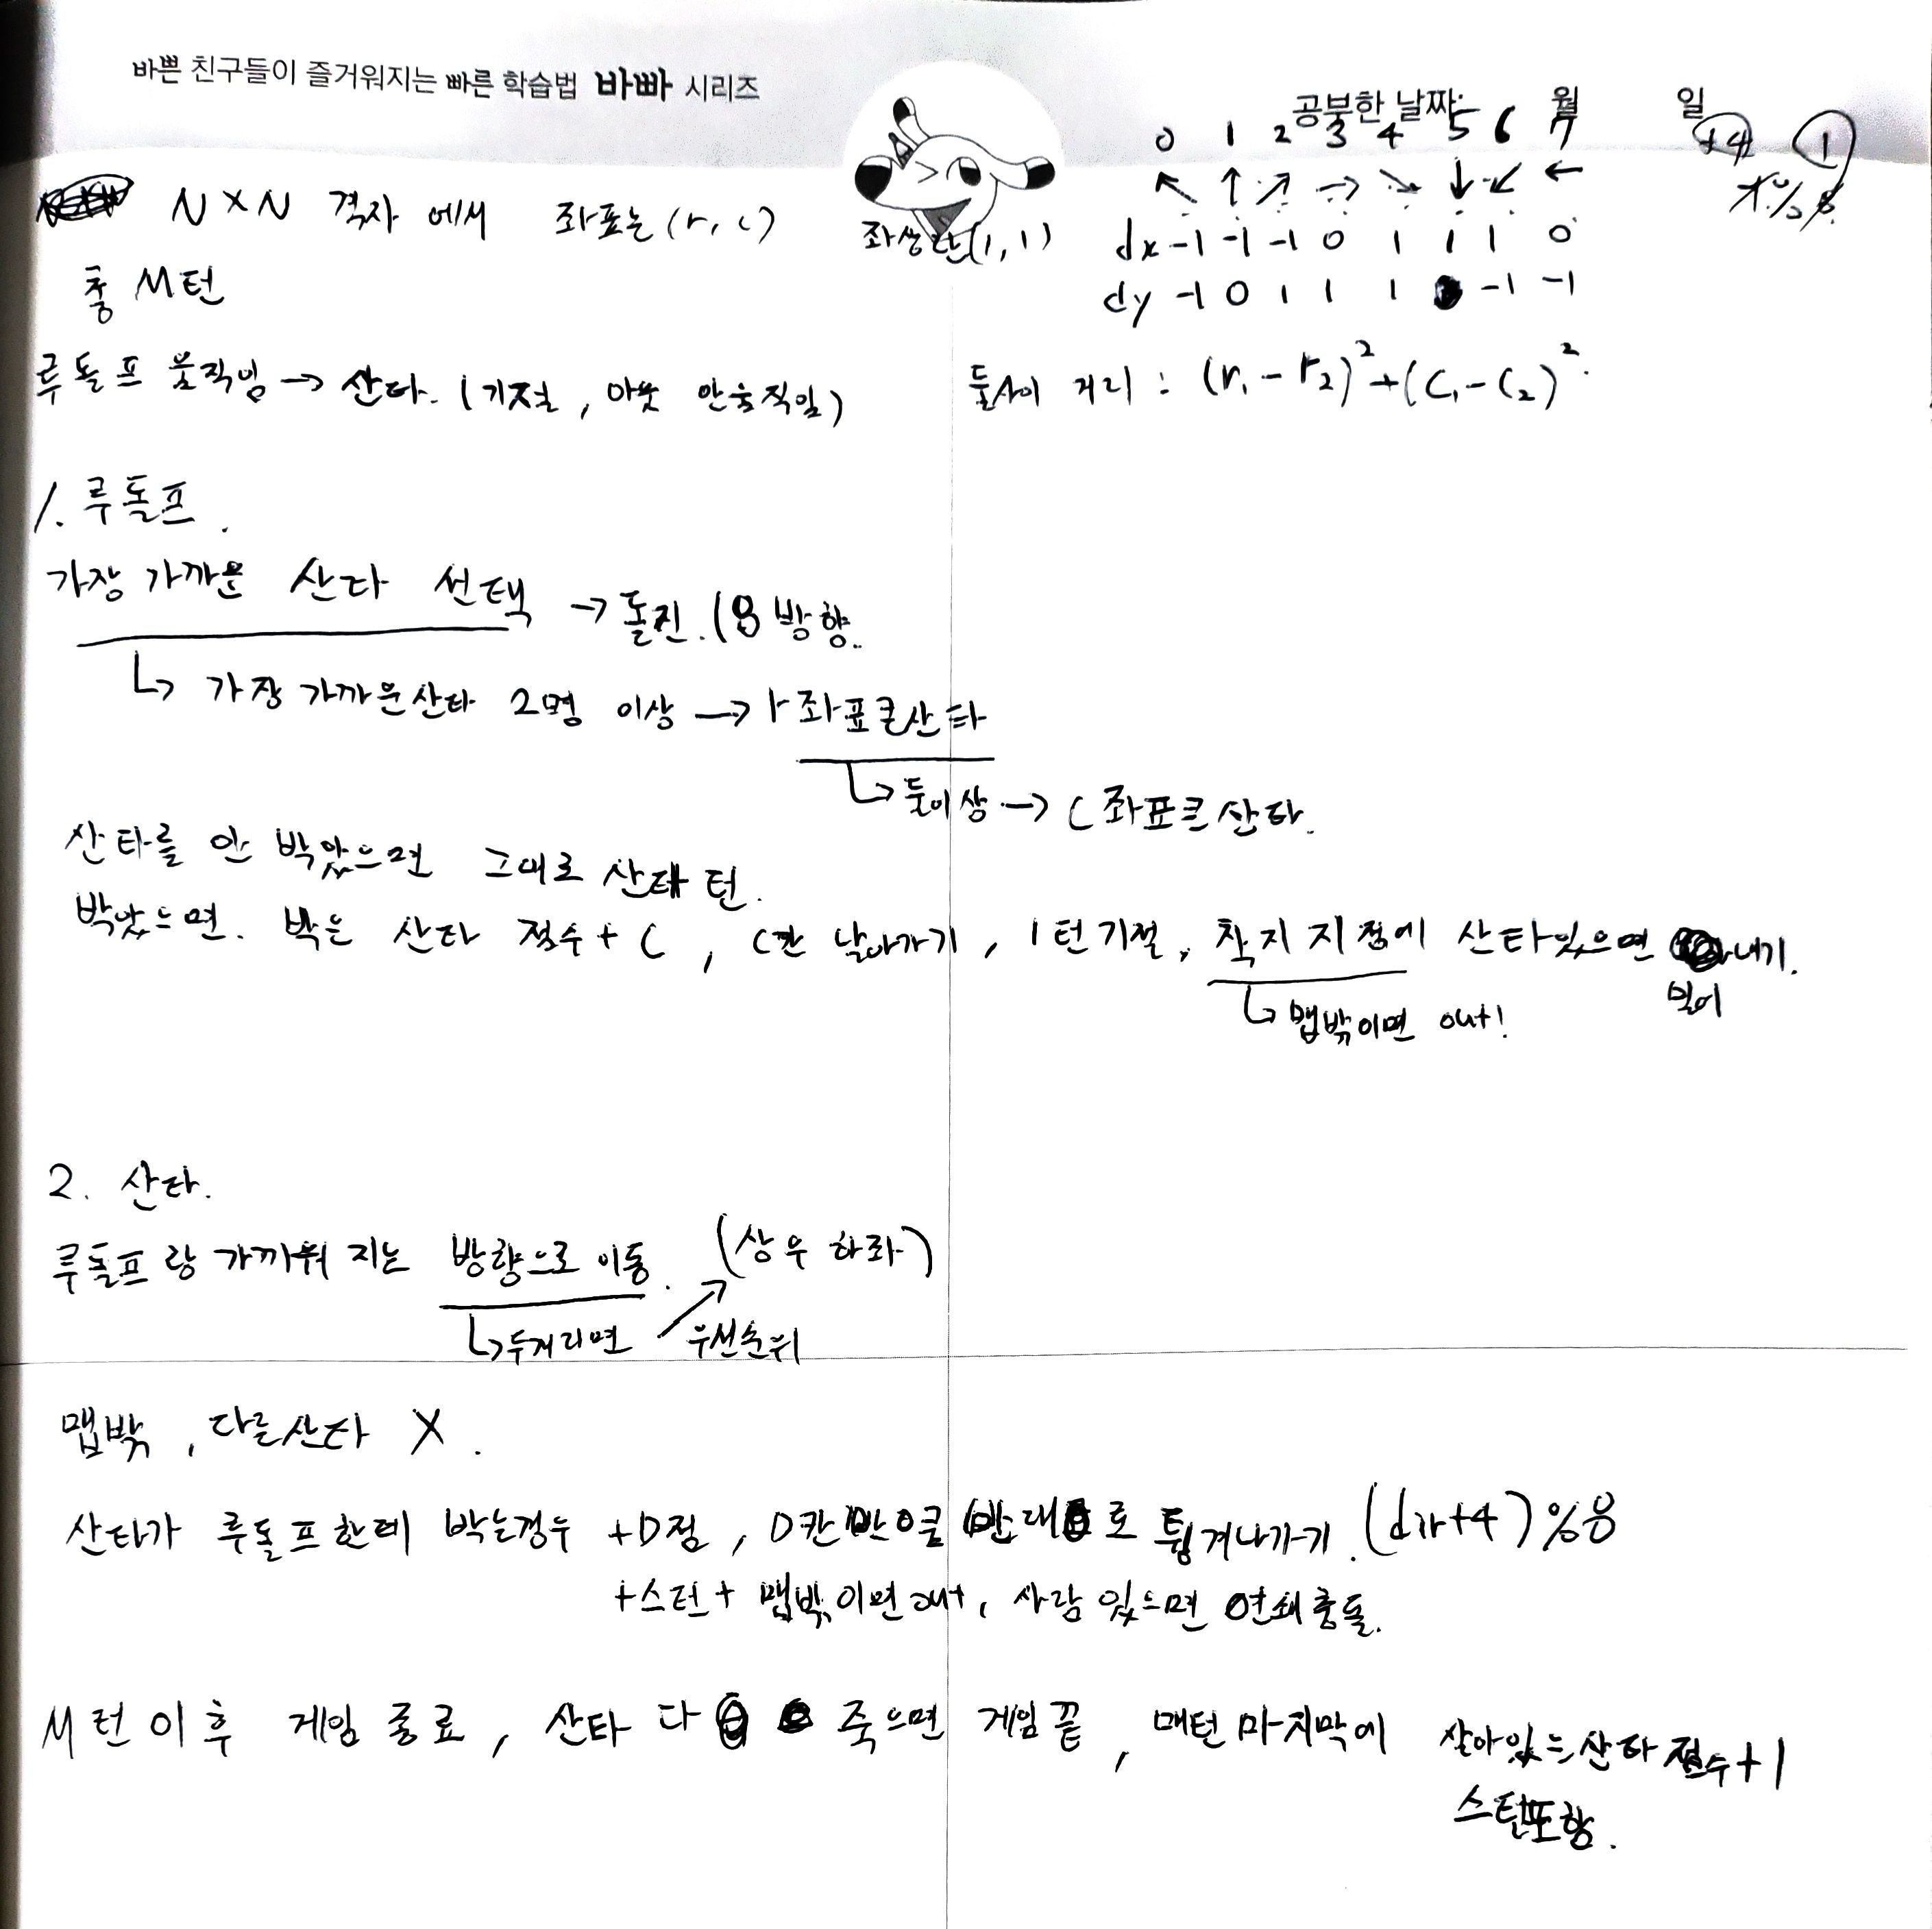 바쁜 친구들이 즐거워지는 빠른 학습법 바빠 시리즈
공부한 날짜: 월 일
0 1 2 3 4 5 6 7
↖ ↑ ↗ → ↘ ↓ ↙ ←
+4 1
% 8
N×N 격자 에서 좌표는 (r, c) 좌상단(1, 1)
dx -1 -1 -1 0 1 1 1 0
총 M턴
dy -1 0 1 1 1 -1 -1
루돌프 움직임 → 산타. (기절, 아웃 안움직임)
둘사이 거리 : (r₁ - r₂)² + (c₁ - c₂)²
1. 루돌프.
가장 가까운 산타 선택 → 돌진. (8방향.
↳ 가장 가까운산타 2명 이상 → r좌표큰산타
↳ 둘이상 → c좌표큰 산타.
산타를 안 박았으면 그대로 산타 턴.
박았으면. 박은 산타 점수 + C, C칸 날아가기, 1턴 기절, 착지 지점에 산타있으면 밀어내기.
↳ 맵밖이면 out!
2. 산타.
루돌프 랑 가까워 지는 방향으로 이동. (상 우 하 좌)
↳ 두개리면 ↗ 우선순위
맵밖, 다른산타 X.
산타가 루돌프한테 박는경우 +D점, D칸 만큼 반대로 튕겨나가기. (dir+4)%8
+스턴+ 맵밖이면 out, 사람 있으면 연쇄충돌.
M턴 이후 게임 종료, 산타 다 죽으면 게임 끝, 매턴 마지막에 살아있는산타 점수+1
스턴포함.